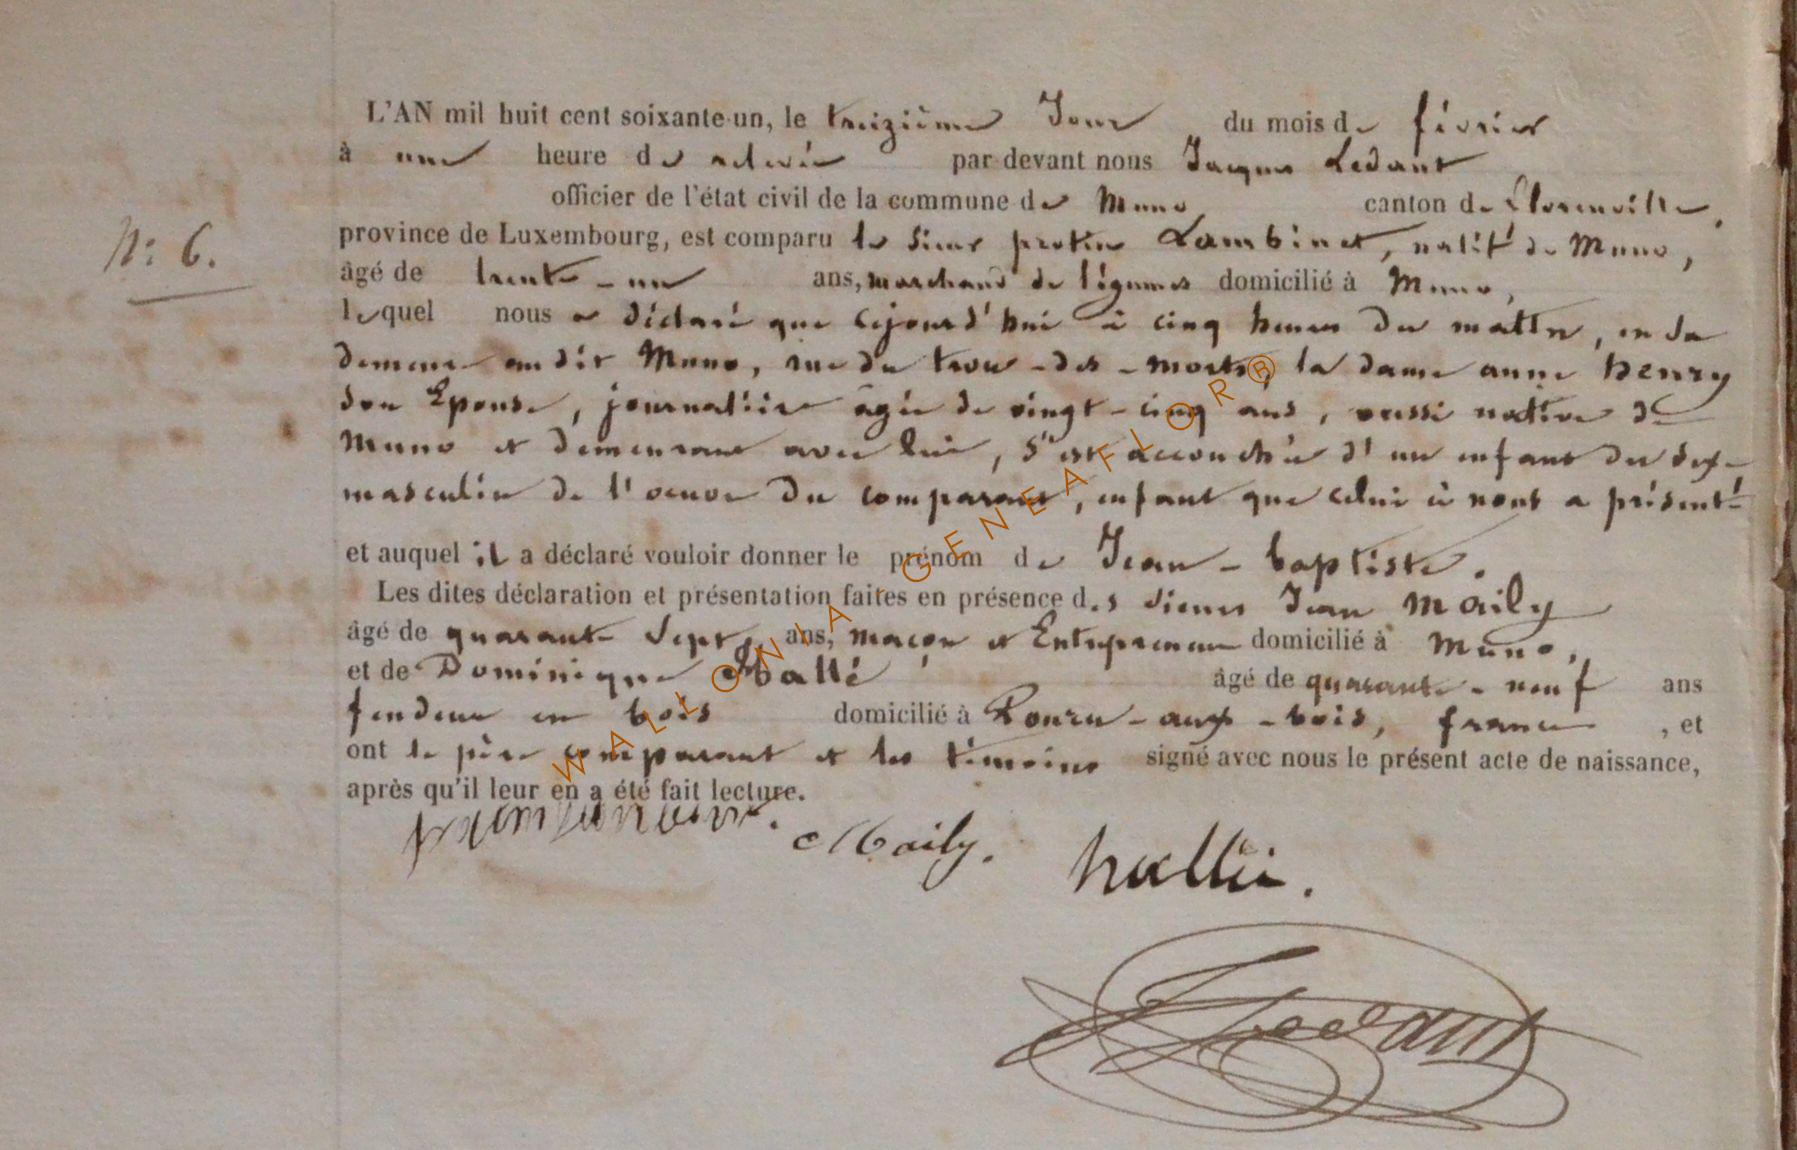 L'AN mil huit cent soixante-un, le treizième Jour du mois de février
à une heure de relevée par-devant nous Jacques Ledant
officier de l'état civil de la commune de Muno canton de Florenville,
N: 6.
province de Luxembourg, est comparu le sieur protin Lambinet, natif de Muno,
âgé de trente-un ans, marchand de légumes domicilié à Muno,
lequel nous a déclaré que cejourd'hui à cinq heures du matin, en sa
demeure audit Muno, rue du trou-des-morts, la dame anne henry
son Epouse, journalière âgée de vingt-cinq ans, aussi native de
Muno et demeurant avec lui, s'est accouchée d'un enfant du sexe
masculin de l'oeuvre du comparant, enfant que celui ci nous a présenté
et auquel il a déclaré vouloir donner le prénom de Jean-baptiste.
Les dites déclaration et présentation faites en présence des sieurs Jean Maily
âgé de quarante sept ans, maçon et Entrepreneur domicilié à Muno,
et de Dominique Hallé âgé de quarante-neuf ans
fendeur en bois domicilié à Pouru-aux-bois, france, et
ont le père comparant et les témoins signé avec nous le présent acte de naissance,
après qu'il leur en a été fait lecture.
Maily. hallé.
Ledant
WALLONIA GENEAFLOR®